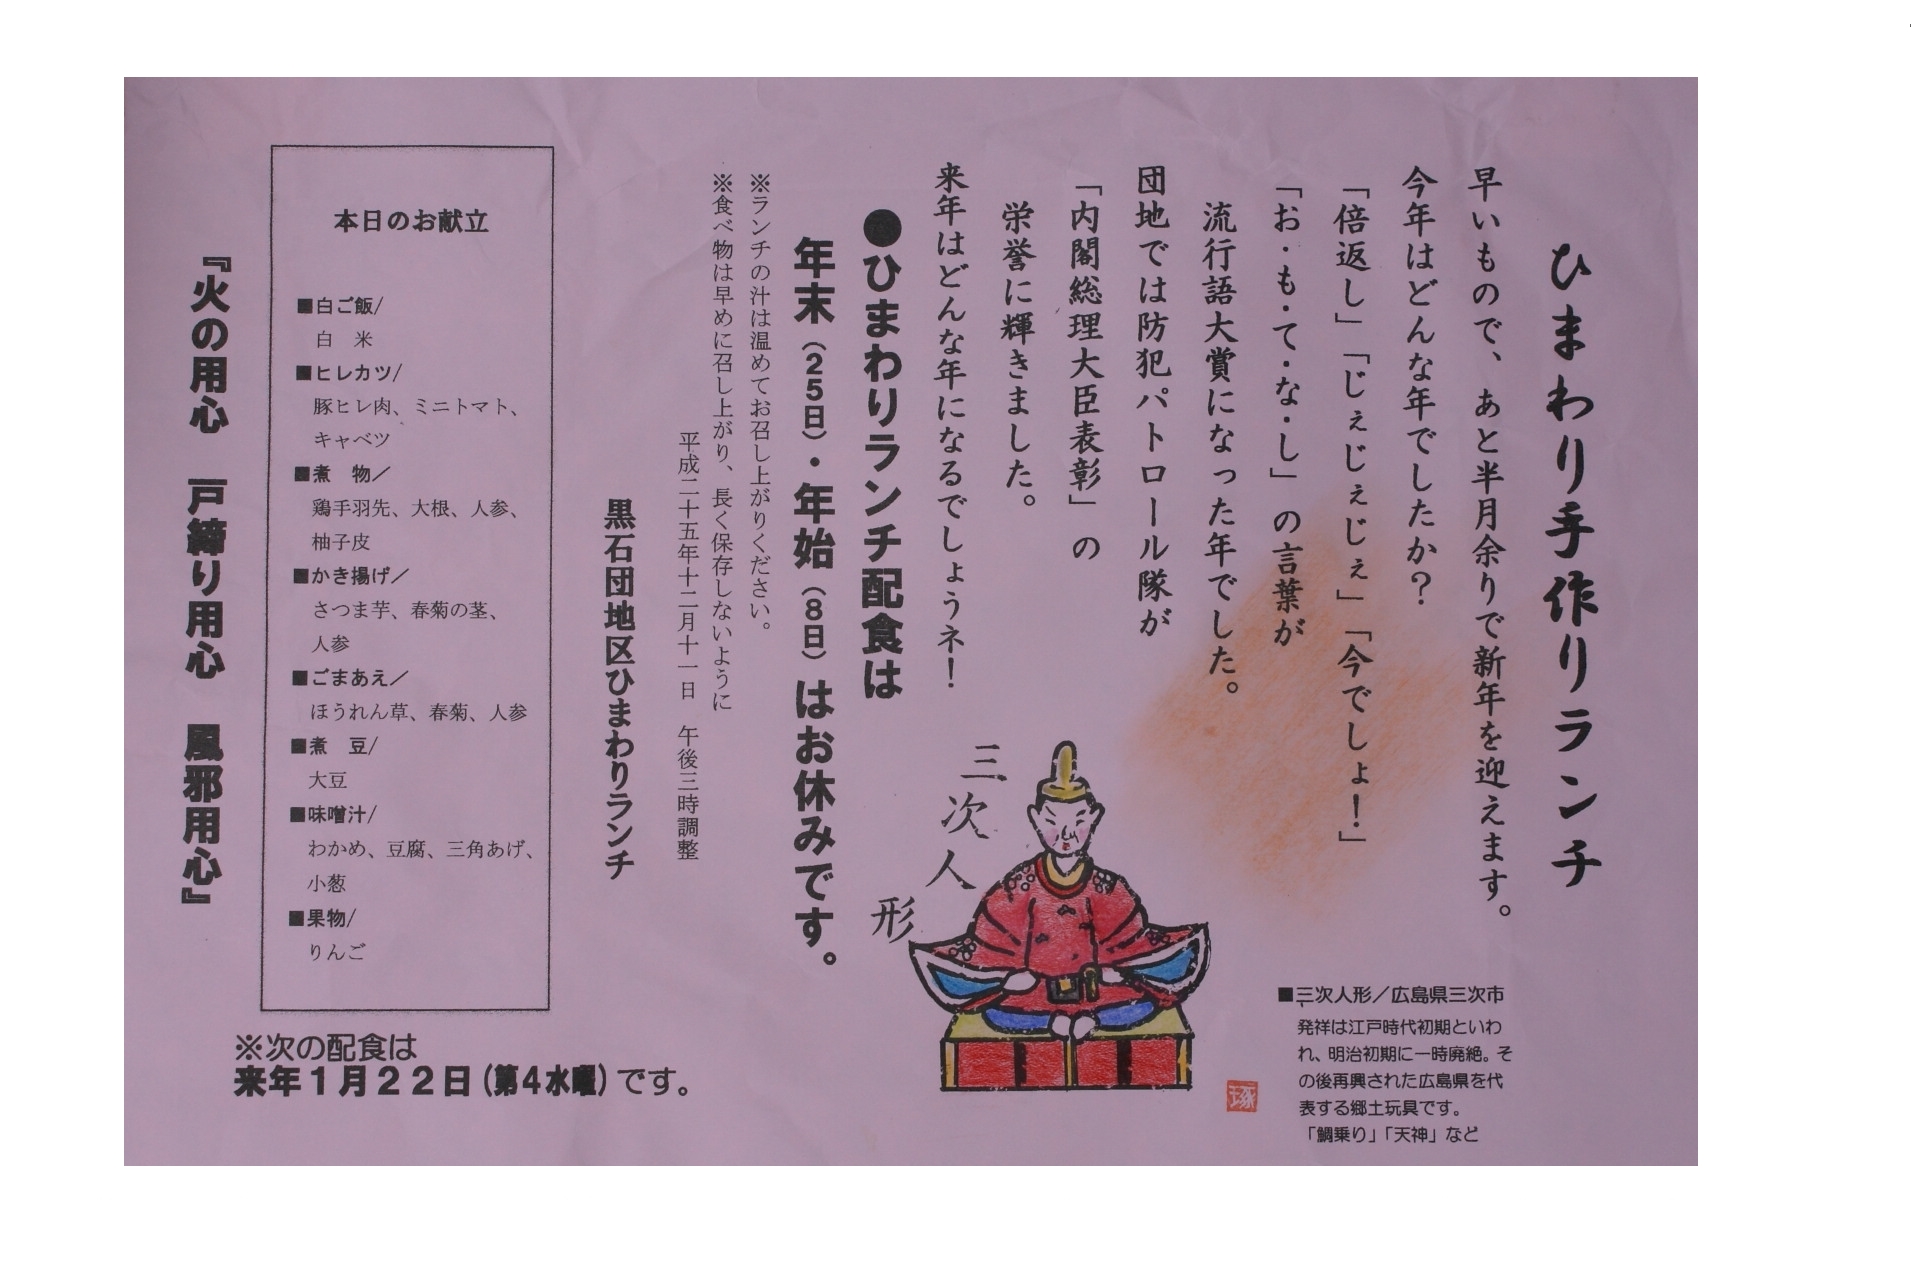 ひまわり手作りランチ
早いもので、あと半月余りで新年を迎えます。
今年はどんな年でしたか?
「倍返し」「じぇじぇじぇ」「今でしょ!」
「お・も・て・な・し」の言葉が
流行語大賞になった年でした。
団地では防犯パトロール隊が
「内閣総理大臣表彰」の
栄誉に輝きました。
来年はどんな年になるでしょうネ!
●ひまわりランチ配食は
年末(25日)・年始(8日)はお休みです。
※ランチの汁は温めてお召し上がりください。
※食べ物は早めに召し上がり、長く保存しないように
平成二十五年十二月十一日 午後三時調整
黒石団地区ひまわりランチ
三次人形
■三次人形/広島県三次市
発祥は江戸時代初期といわ
れ、明治初期に一時廃絶。そ
の後再興された広島県を代
表する郷土玩具です。
「鯛乗り」「天神」など
琢
本日のお献立
■白ご飯/
白 米
■ヒレカツ/
豚ヒレ肉、ミニトマト、
キャベツ
■煮 物/
鶏手羽先、大根、人参、
柚子皮
■かき揚げ/
さつま芋、春菊の茎、
人参
■ごまあえ/
ほうれん草、春菊、人参
■煮 豆/
大豆
■味噌汁/
わかめ、豆腐、三角あげ、
小葱
■果物/
りんご
『火の用心 戸締り用心 風邪用心』
※次の配食は
来年1月22日(第4水曜)です。